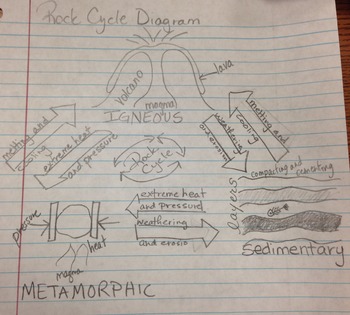 Rock Cycle Diagram
lava
volcano
magma
IGNEOUS
melting and
cooling
extreme heat
and pressure
Rock
Cycle
weathering
and erosion
melting and
cooling
compacting and cementing
layers
extreme heat
and pressure
weathering
and erosio
pressure
heat
magma
METAMORPHIC
Sedimentary